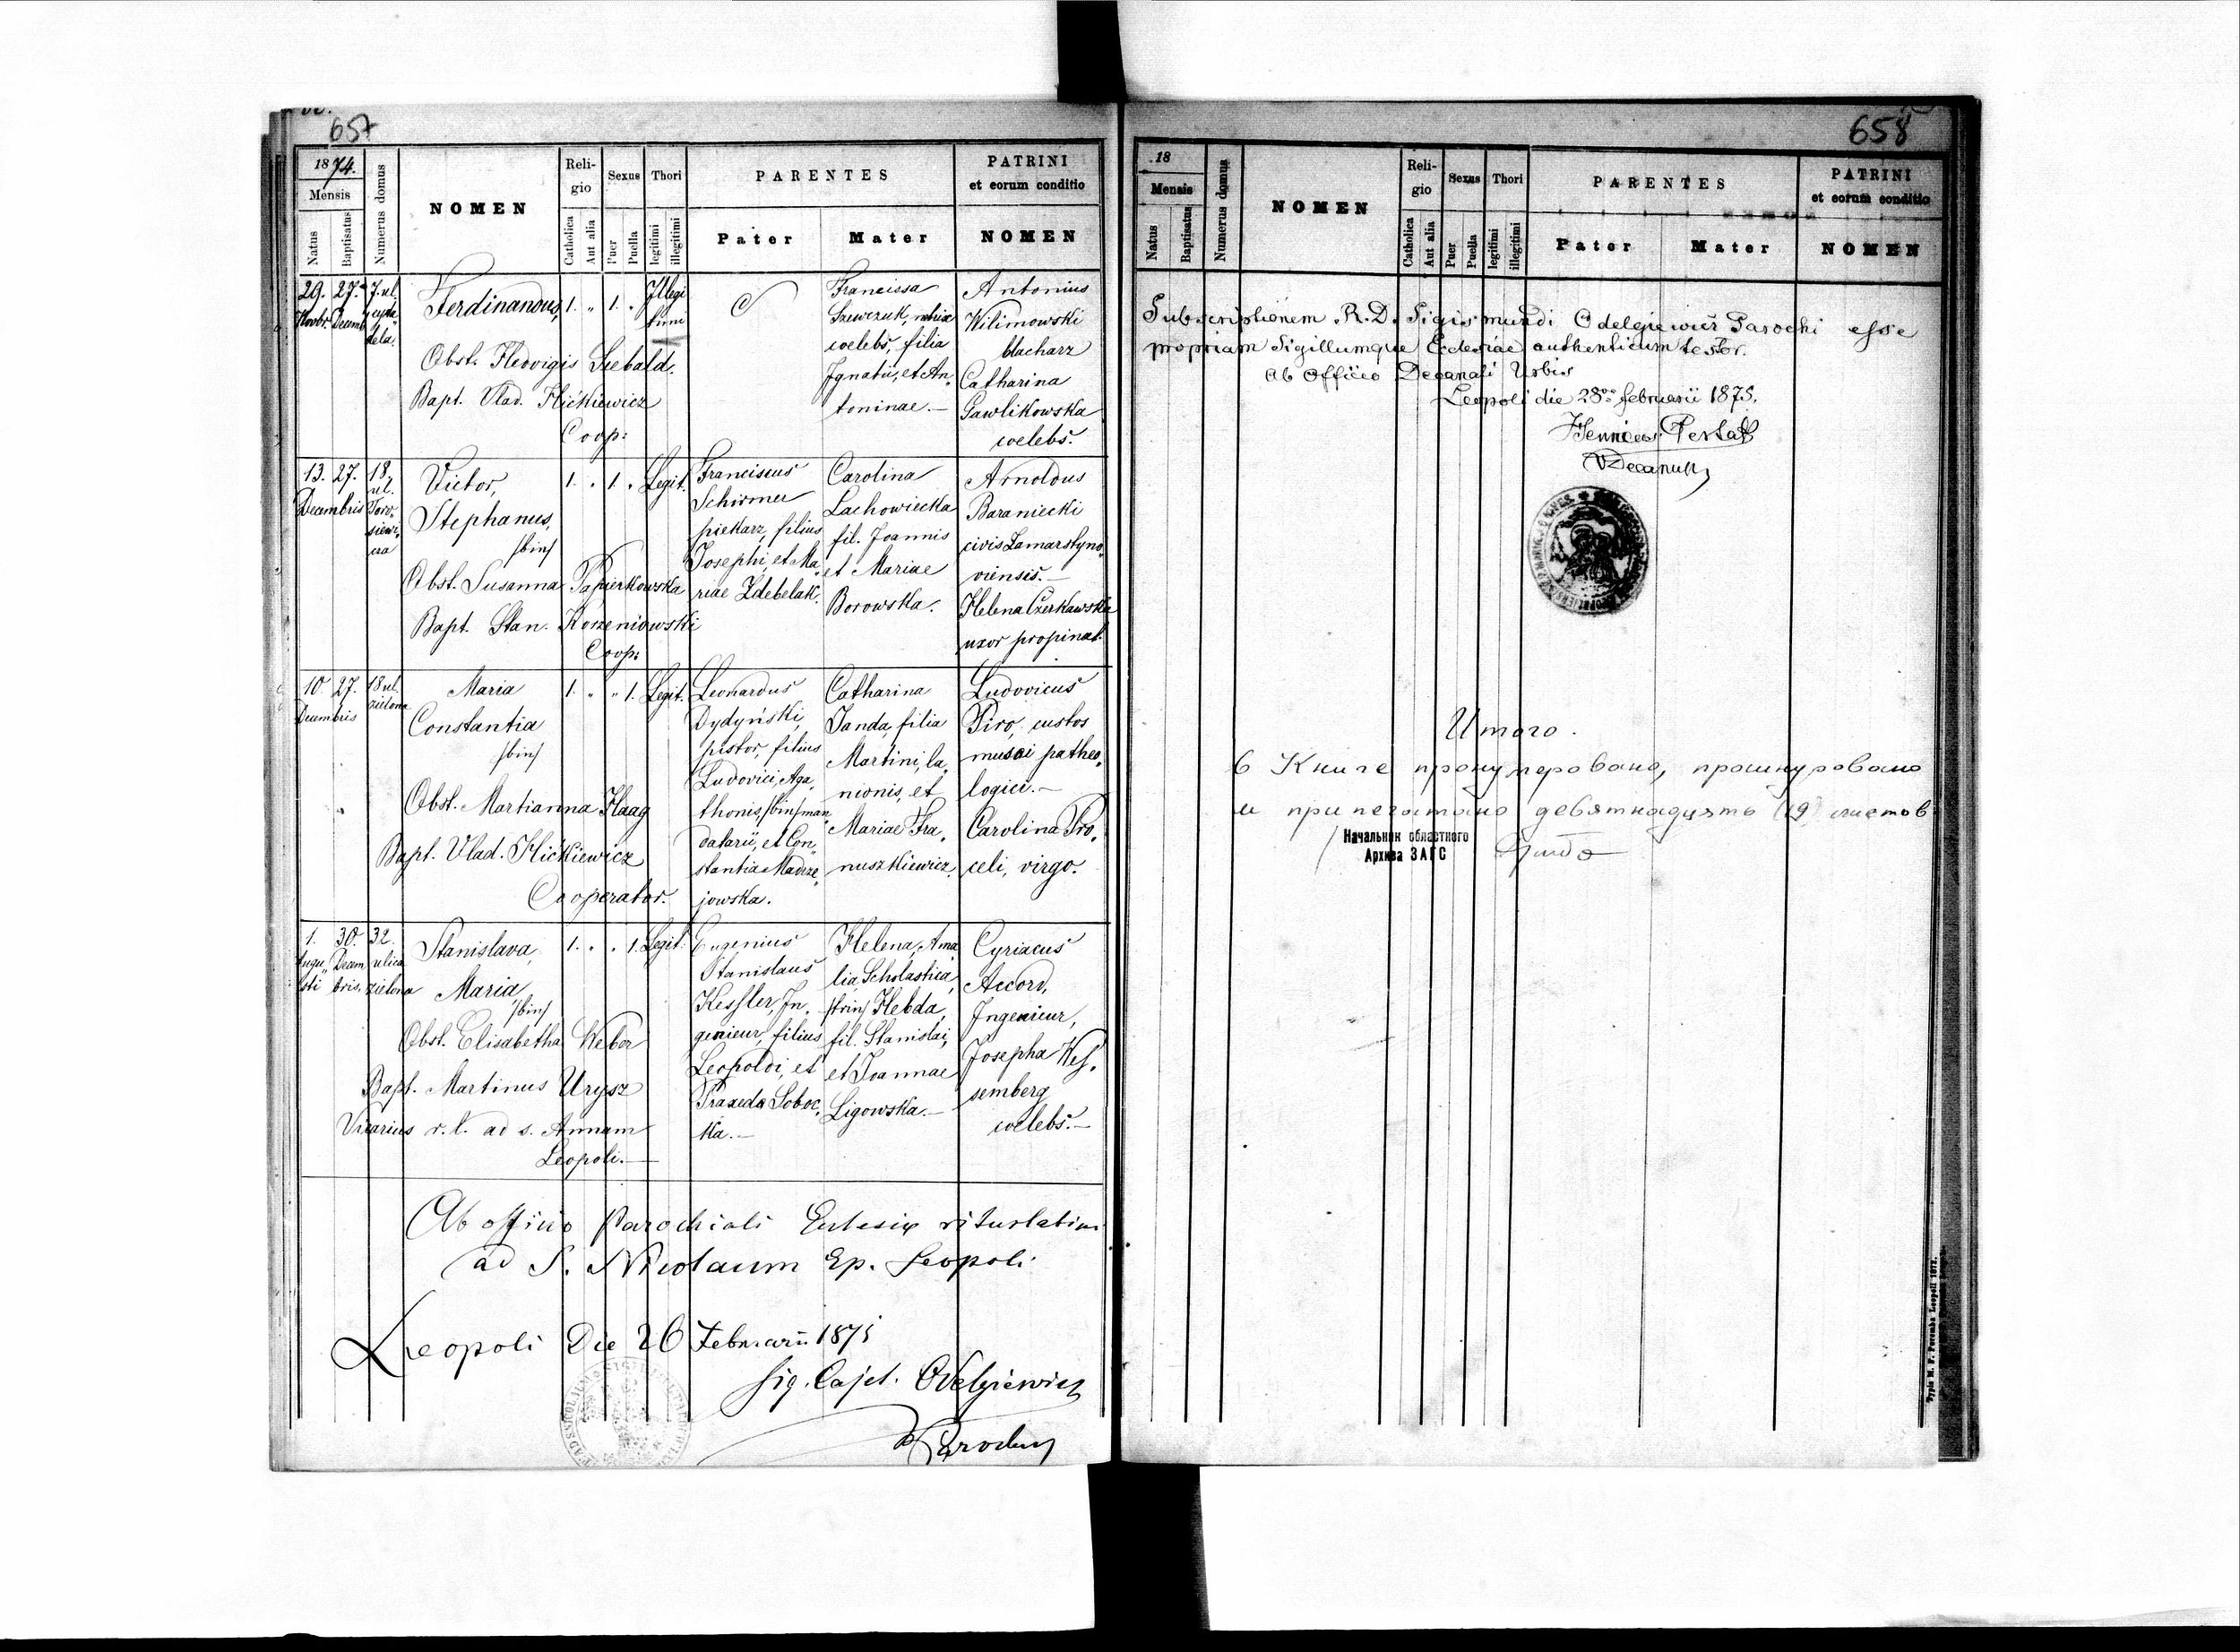 657
1874.
Mensis
Natus
Baptisatus
Numerus domus
NOMEN
Religio
Catholica
Aut alia
Sexus
Puer
Puella
Thori
legitimi
illegitimi
PARENTES
Pater
Mater
PATRINI
et eorum conditio
NOMEN
29. 27. 7. ul.
Novbr. Decemb.
Ferdinandus,
1. „ 1. „
Illegi
timi
Obst. Hedvigis Siebald.
Bapt. Vlad. Hićkiewicz
Coop:
Francissa
Szewczuk,
coelebs, filia
Ignatii, et An„
toninae.—
Antonius
Wilimowski
blacharz
Catharina
Gawlikowska
coelebs.
13. 27. 18.
Decembris
ul.
Toro„
siewi„
cza
Victor,
Stephanus,
/bin/
1. „ 1. „ Legit.
Obst. Susanna Papierkowska
Bapt. Stan. Korzeniowski
Coop:
Franciscus
Schirmer
piekarz, filius
Josephi, et Ma„
riae Zdebelak.
Carolina
Lachowiecka
fil. Joannis
et Mariae
Borowska.
Arnoldus
Baraniecki
civis Zamarstyno„
viensis.—
Helena Czerkawska
uxor propinat.
10. 27. 18 ul.
Decembris zielona
Maria
Constantia
/bin/
1. „ „ 1. Legit.
Obst. Martianna Haag
Bapt. Vlad. Hićkiewicz
Cooperator.
Leonardus
Dydyński,
pistor, filius
Ludovici, Aga„
thonis, /bin/ man„
datarii, et Con„
stantia Madrze„
jowska.
Catharina
Janda, filia
Martini, la„
nionis, et
Mariae Fra„
nuszkiewicz.
Ludovicus
Piro, custos
musei patheo„
logici.—
Carolina Pro„
celi, virgo.
1. 30. 32.
Augu„ Decem ulica
sti bris. zielona
Stanislava,
Maria,
/bin/
1. „ „ 1. Legit.
Obst. Elisabetha Weber
Bapt. Martinus Urysz
Vicarius r. l. ad s. Annam
Leopoli.—
Eugenius
Stanislaus
Kessler, In„
genieur, filius
Leopoldi, et
Praxeda Soboc„
ka.—
Helena, Ama
lia, Scholastica,
/trin/ Hebda,
fil. Stanislai,
et Joannae
Ligowska.—
Cyriacus
Accord,
Ingenieur,
Josepha Wes„
semberg
coelebs.—
Ab officio Parochiali Eclesiæ ritus latini
ad S. Nicolaum Ep. Leopoli
Leopoli Die 26 Februarii 1875
Sig. Cajet. Odelgiewicz
Parochus
658
18
Mensis
Natus
Baptisatus
Numerus domus
NOMEN
Religio
Catholica
Aut alia
Sexus
Puer
Puella
Thori
legitimi
illegitimi
PARENTES
Pater
Mater
PATRINI
et eorum conditio
NOMEN
Subscriptionem R. D. Sigismundi Odelgiewicz Parochi esse
propriam Sigillumque Ecclesiae authenticum testor.
Ab Officio Decanali Urbis
Leopoli die 28va februarii 1875.
VDecanus
Итого.
в Книге пронумеровано, прошнуровано
и припечатано девятнадцать (19) листов
Начальник областного
Архива ЗАГС